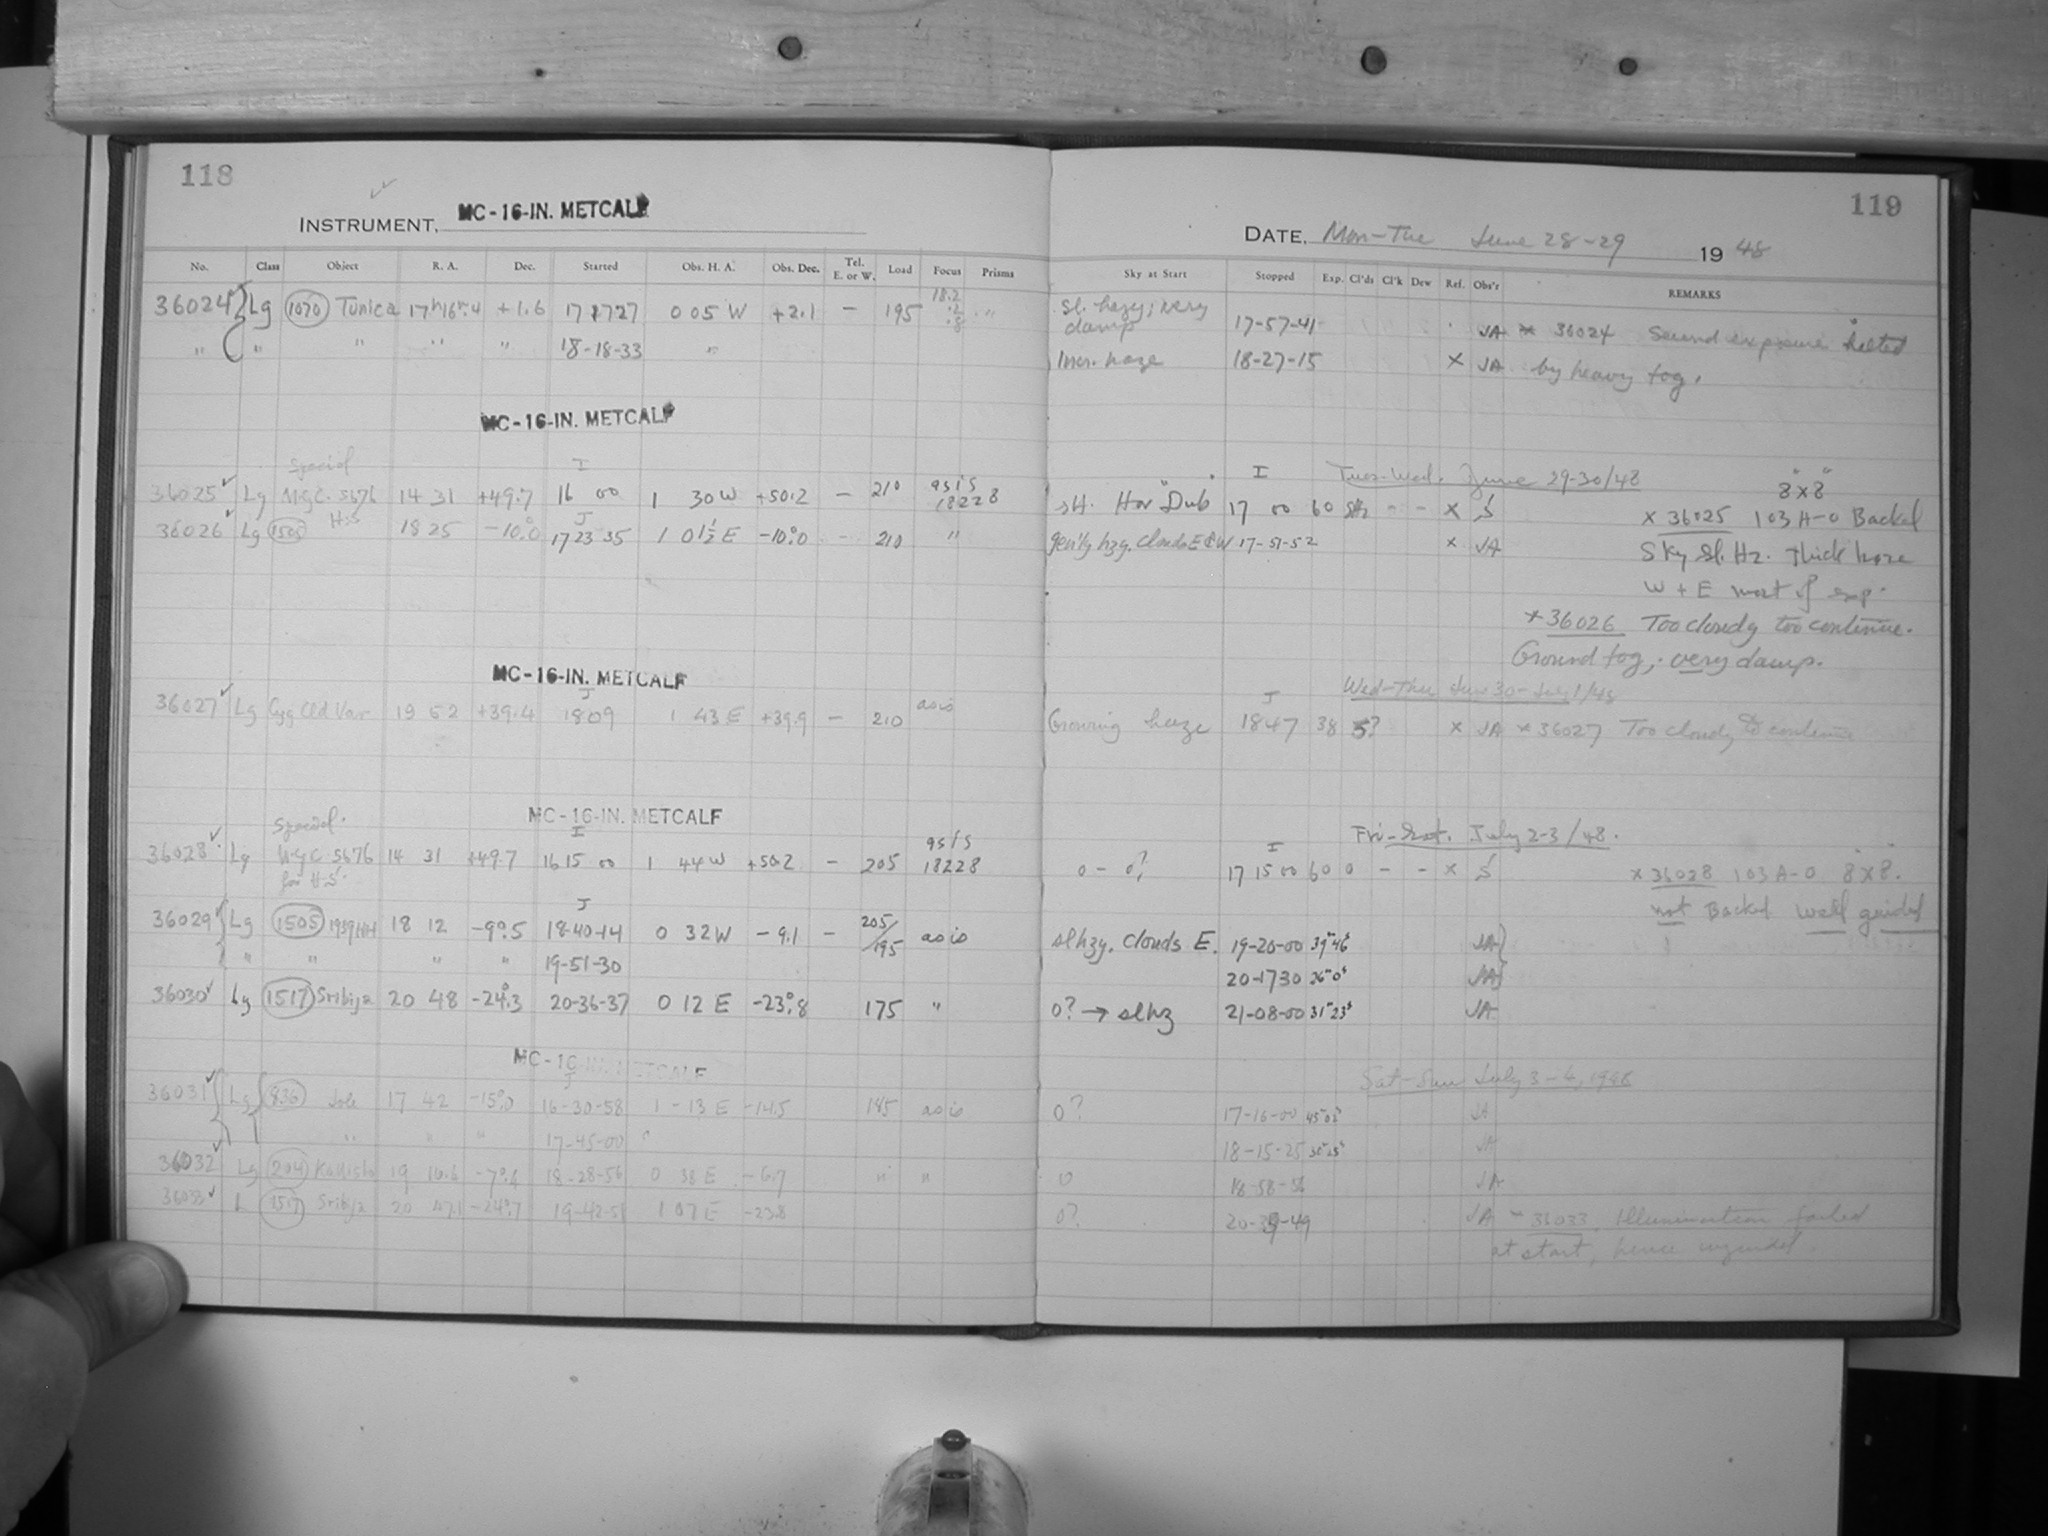 118
INSTRUMENT, MC-16-IN. METCALF
No. Class Object R. A. Dec. Started Obs. H. A. Obs. Dec. Tel. E. or W. Load Focus Prisms
36024 Lg 1070 Tunica 17h16m.4 +1.6 17 17 27 0 05 W +2.1 — 195 18.2 .2 .8 "
" " " " " 18-18-33 "
MC-16-IN. METCALF
Special I
36025 Lg N.G.C. 5676 14 31 +49.7 16 00 1 30 W +50.2 — 210 as is 18228
H.S. J
36026 Lg 1505 18 25 -10.0 17 23 35 1 01½ E -10.0 - 210 "
MC-16-IN. METCALF
J
36027 Lg Cyg Cld Var 19 52 +39.4 1809 1 43 E +39.9 — 210 as is
MC-16-IN. METCALF
Special. I
36028 Lg N.G.C. 5676 14 31 +49.7 16 15 00 1 44 W +50.2 — 205 as is 18228
for H.S. J
36029 Lg 1505 1939 HH 18 12 -9.5 18-40-14 0 32 W -9.1 — 205/195 as is
" " " " 19-51-30
36030 Lg 1517 Sribija 20 48 -24.3 20-36-37 0 12 E -23.8 175 "
MC-16-IN. METCALF
J
36031 Lg 836 Jole 17 42 -15.0 16-30-58 1-13 E -14.5 185 as is
" " " 17-45-00 "
36032 Lg 204 Kallisto 19 16.6 -7.4 18-28-56 0 38 E -6.7 " "
36033 L 1517 Sribija 20 47.1 -24.7 19-42-51 1 07 E -23.8
119
DATE, Mon-Tue June 28-29 19 48
Sky at Start Stopped Exp. Cl'ds Cl'k Dew Ref. Obs'r REMARKS
Sl. hazy; very damp 17-57-41 JA * 36024 Second exposure halted
Incr. haze 18-27-15 X JA by heavy fog.
I Tues-Wed. June 29-30/48 8"x8"
sH. Hor "Dub" 17 00 60 SHz - - X S x 36025 103 A-O Backed
gen'ly hzy. clouds E & W 17-51-52 x JA Sky Sl. Hz. Thick haze
W + E most of exp.
*36026 Too cloudy too continue.
Ground fog, very damp.
J Wed-Thu June 30-July 1/48
Growing haze 1847 38 5? X JA *36027 Too cloudy to continue
Fri-Sat. July 2-3/48.
I
0-0? 17 15 00 60 0 - - x S x 36028 103 A-O 8"x8".
not Backed Well guided
sl hzy. clouds E. 19-20-00 39m46s JA
20-1730 26m0s JA
0? → sl hz 21-08-00 31m23s JA
Sat-Sun July 3-4, 1948
0? 17-16-00 45m02s JA
18-15-25 30m25s JA
0 18-58-56 JA
0? 20-39-49 JA * 36033. Illumination failed
at start, hence unguided.